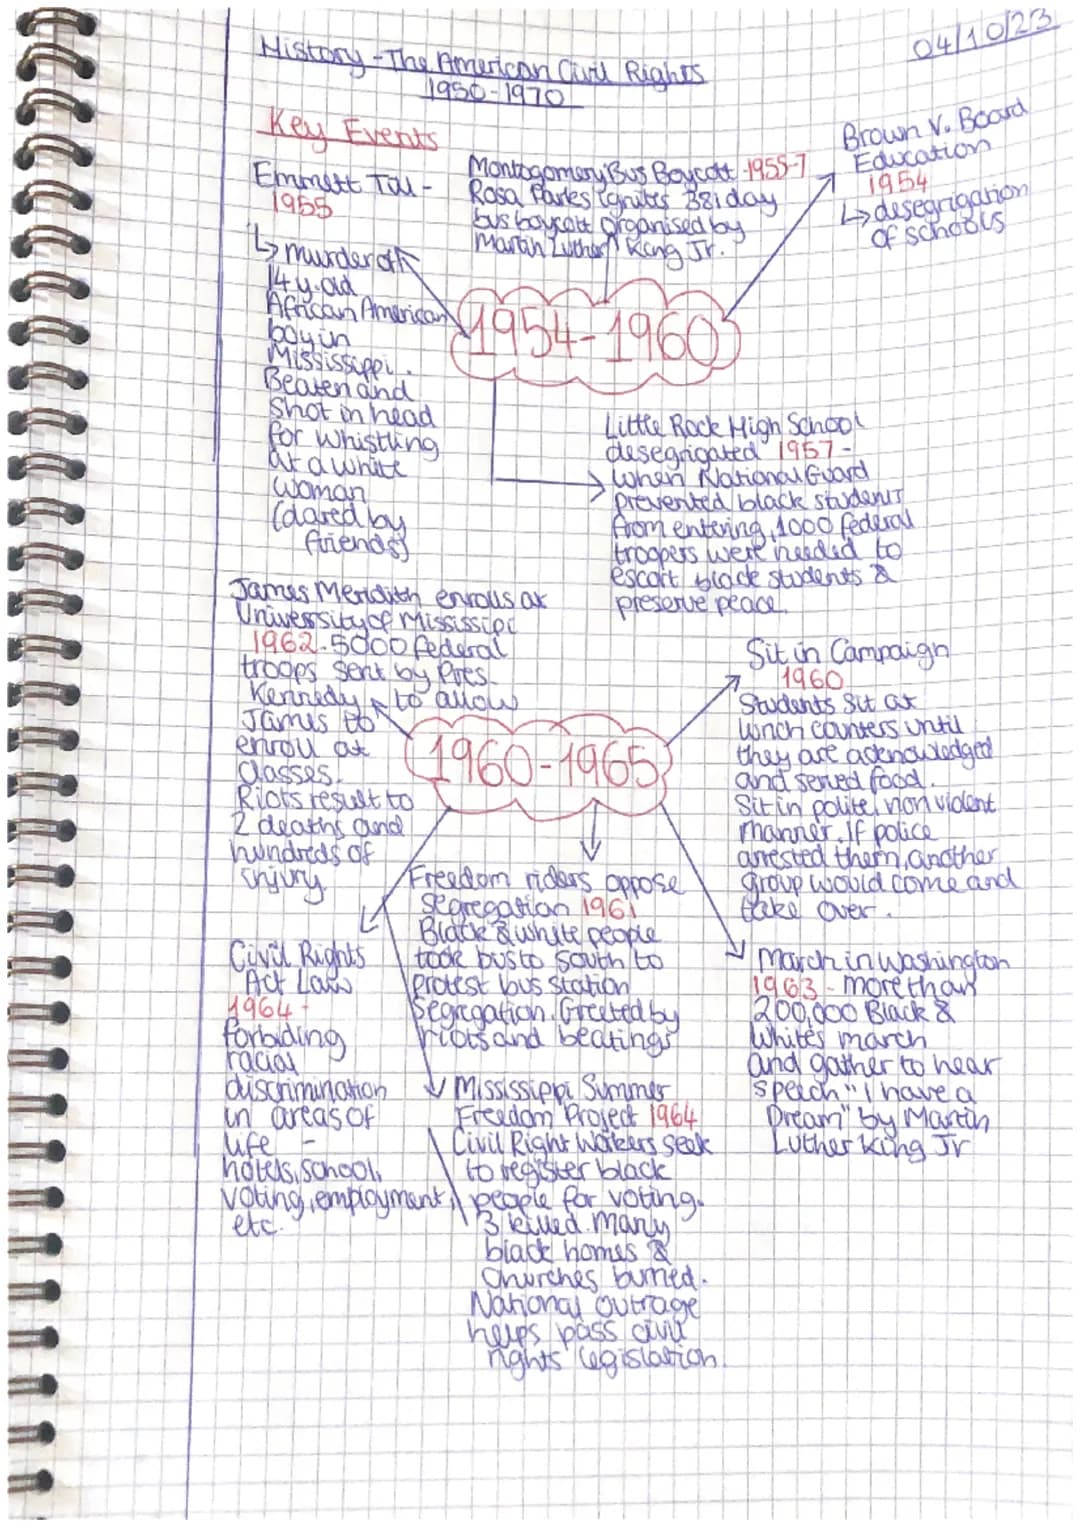 04/10/23
History - The American Civil Rights
1950-1970
Key Events
Emmett Till -
1955
↳ murder of
14 y.old
African American
boy in
Mississippi.
Beaten and
shot in head
for whistling
at a white
woman
(dared by
friends)
Montogomery Bus Boycott 1955-7
Rosa Parks ignites 381 day
bus boycott organised by
Martin Luther King Jr.
Brown V. Board
Education
1954
↳ desegrigation
of schools
1954-1960
Little Rock High School
desegrigated 1957 -
when National Guard
prevented black students
from entering, 1000 federal
troopers were needed to
escort black students &
preserve peace.
James Meridith enrolls at
University of Mississipi
1962. 5000 federal
troops sent by Pres.
Kennedy to allow
James to
enroll at
classes.
Riots result to
2 deaths and
hundreds of
injury
1960-1965
Sit in Campaign
1960
Students sit at
lunch counters until
they are acknowledged
and served food.
Sit in polite, non violent
manner. If police
arrested them, another
group would come and
take over.
Freedom riders oppose
segregation 1961
Black & white people
took bus to south to
protest bus station
segregation. Greeted by
riots and beatings
Civil Rights
Act Law
1964 -
forbiding
racial
discrimination
in areas of
life -
hotels, school,
voting, employment,
etc.
March in Washington
1963 - more than
200,000 Black &
Whites march
and gather to hear
speech "I have a
Dream" by Martin
Luther King Jr
Mississippi Summer
Freedom Project 1964
Civil Right Workers seek
to register black
people for voting.
3 killed. Many
black homes &
churches burned.
National outrage
helps pass civil
rights legislation.